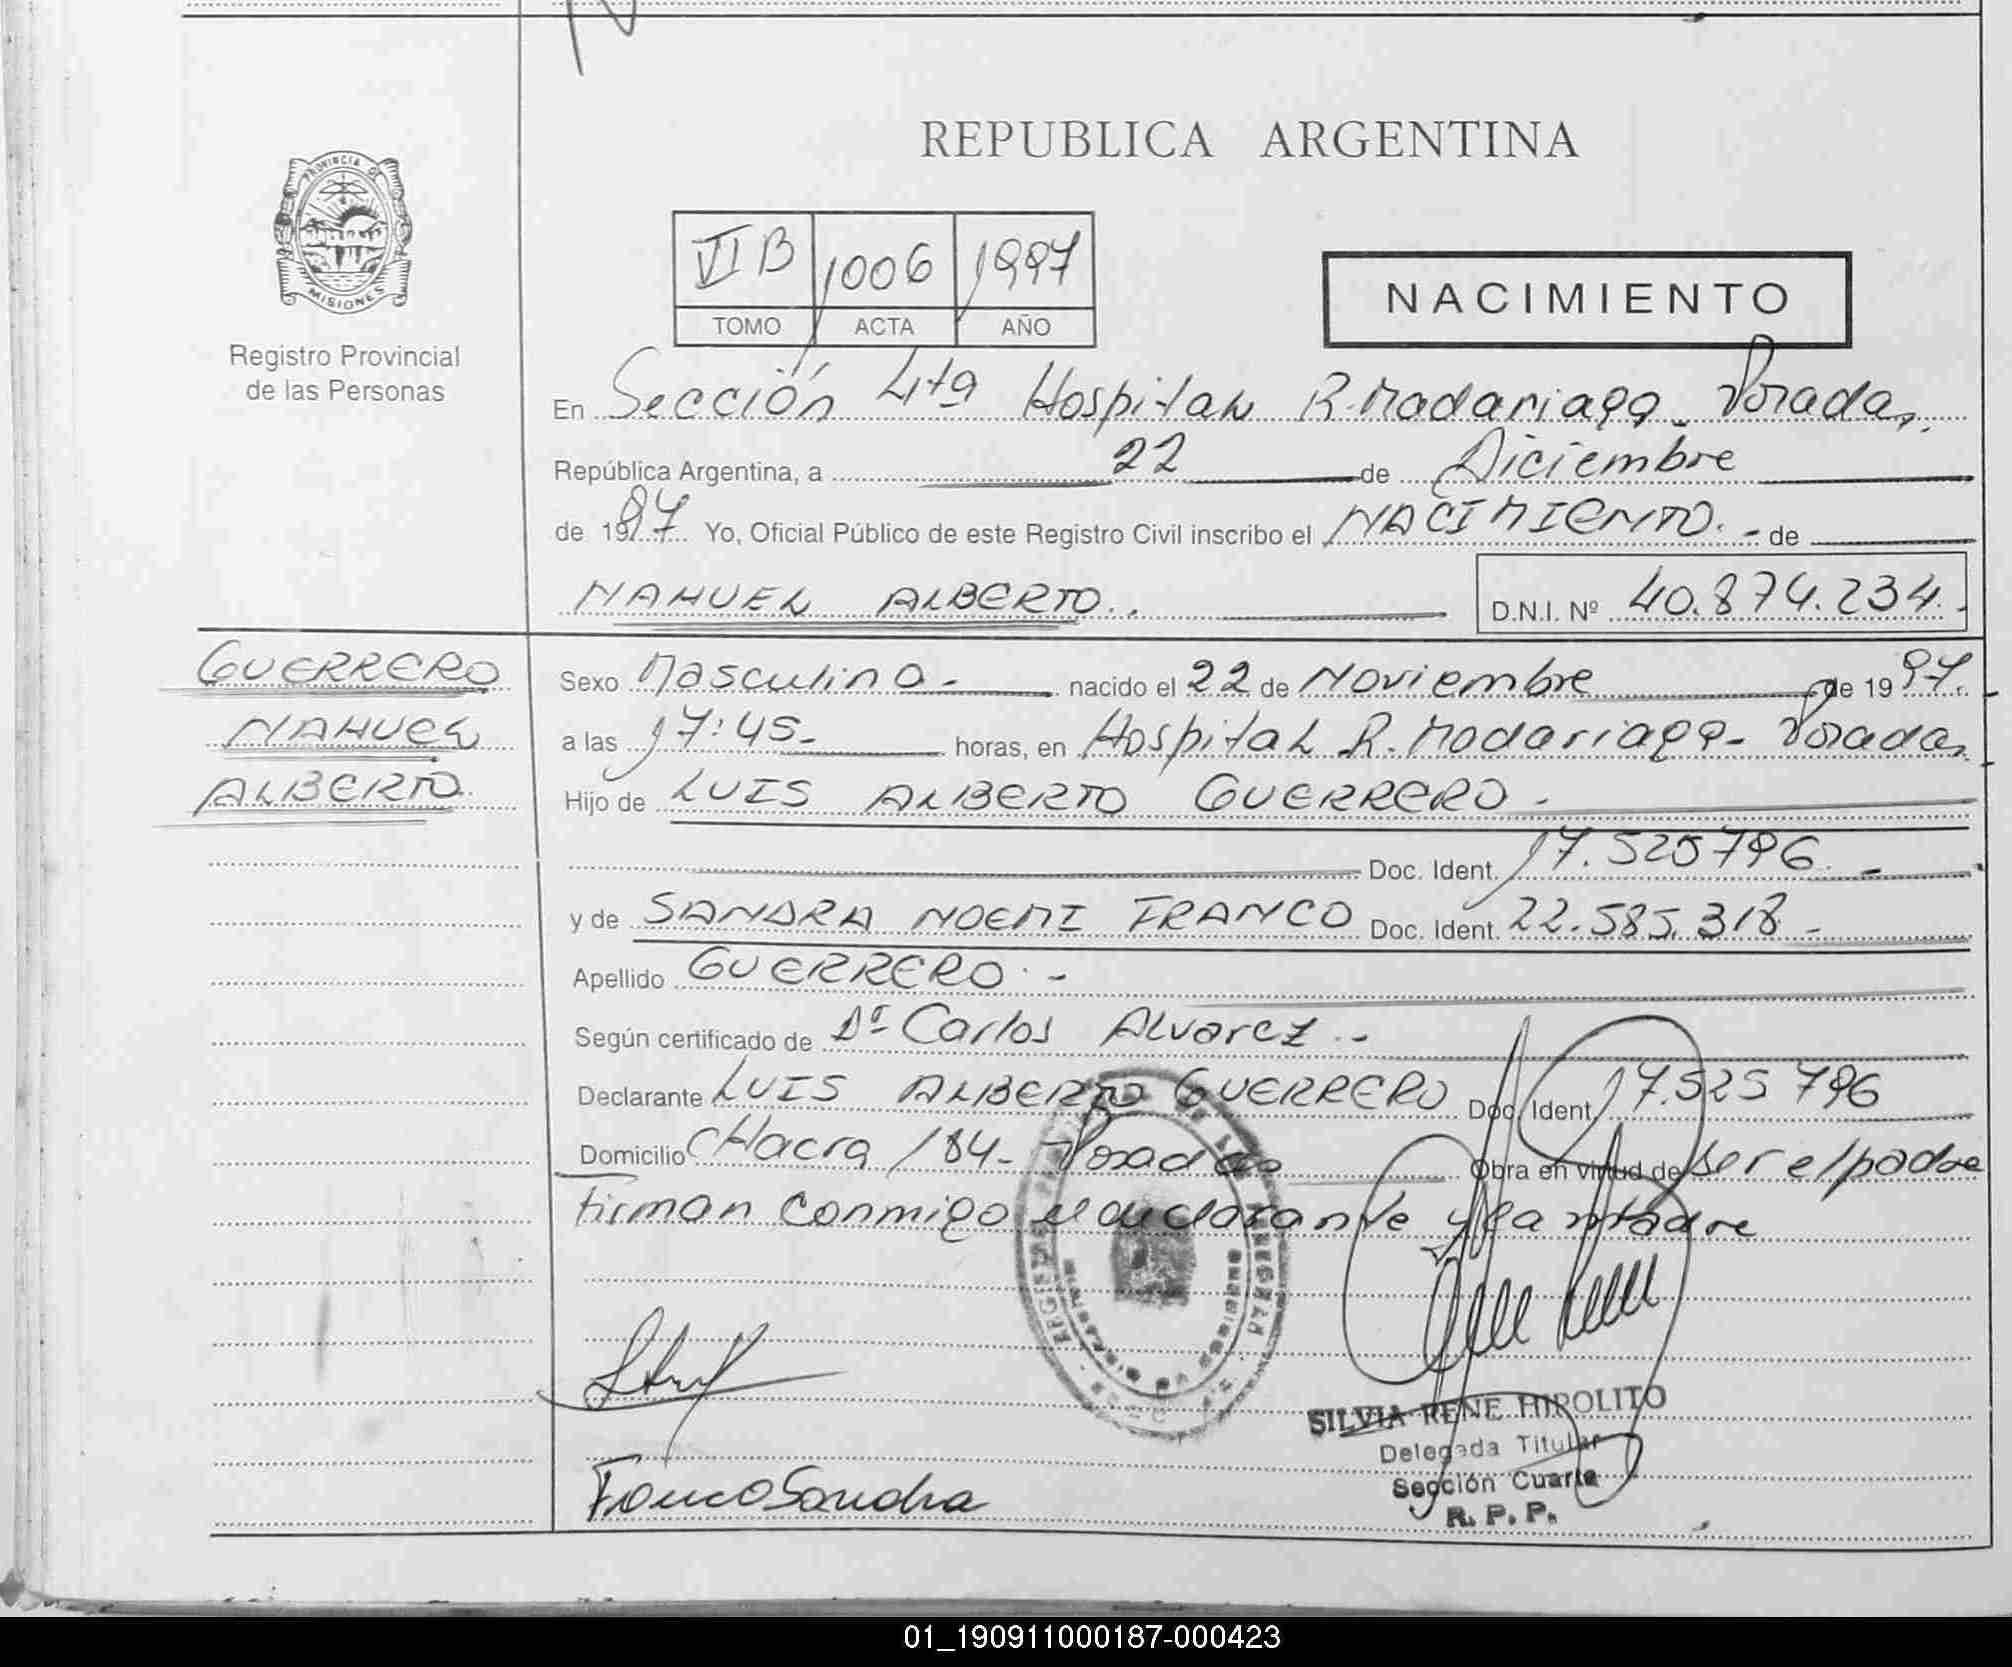 REPUBLICA ARGENTINA
PROVINCIA DE
MISIONES
Registro Provincial
de las Personas
VI B 1006 1997
TOMO ACTA AÑO
NACIMIENTO
En Sección 4ta Hospital R. Madariaga - Posadas,
República Argentina, a 22 de Diciembre
de 1997 Yo, Oficial Público de este Registro Civil inscribo el NACIMIENTO.- de
NAHUEL ALBERTO.. D.N.I. Nº 40.874.234.-
GUERRERO
NAHUEL
ALBERTO
Sexo Masculino.- nacido el 22 de Noviembre de 1997.
a las 17:45.- horas, en Hospital R. Madariaga - Posadas
Hijo de LUIS ALBERTO GUERRERO.-
Doc. Ident. 17.525796.-
y de SANDRA NOEMI FRANCO Doc. Ident. 22.585.318.-
Apellido GUERRERO.-
Según certificado de Dr Carlos Alvarez.-
Declarante LUIS ALBERTO GUERRERO Doc. Ident. 17.525796
Domicilio CHacra 184- Posadas Obra en virtud de ser el padre
Firman conmigo el declarante y la madre
Franco Sandra
SILVIA RENE HIPOLITO
Delegada Titular
Sección Cuarta
R. P. P.
01_190911000187-000423